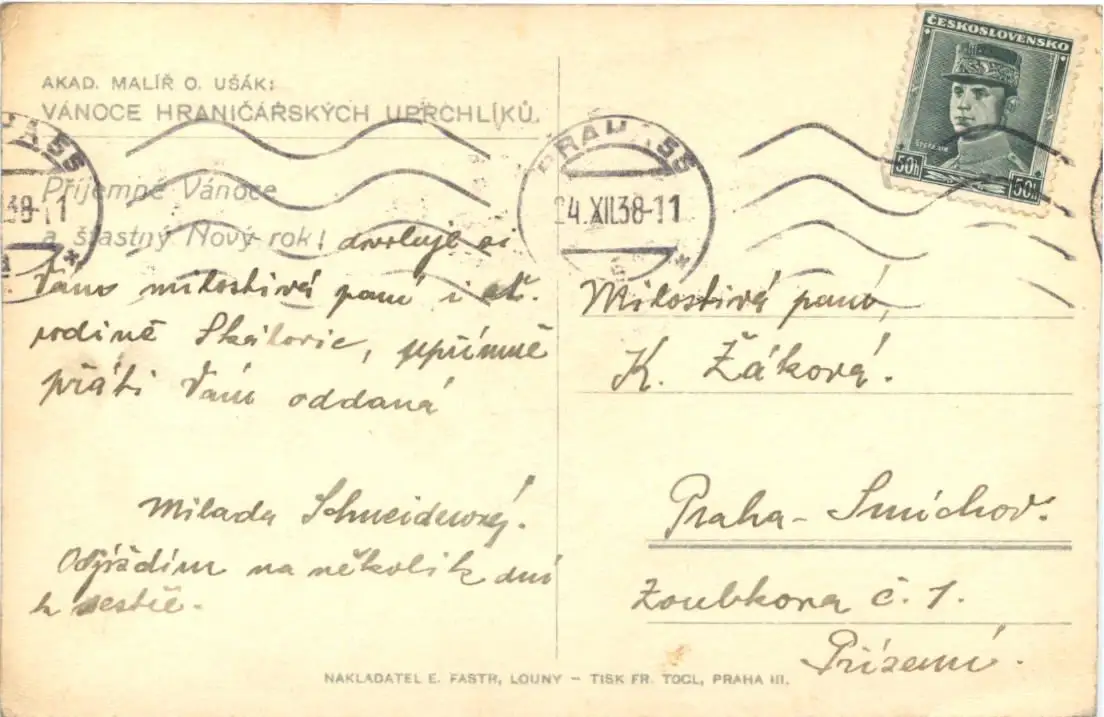 AKAD. MALÍŘ O. UŠÁK:
VÁNOCE HRANIČÁŘSKÝCH UPRCHLÍKŮ.
Příjemné Vánoce
a šťastný Nový rok! dovoluje si
Vám milostivá paní i ct.
rodině upřímně
přáti Vám oddaná
Milada Schneiderová.
Odjíždím na několik dní
k sestře.
ČESKOSLOVENSKO
ŠTEFÁNIK
50h 50h
PRAHA 55
24.XII.38-11
38-11
Milostivá paní,
K. Žáková.
Praha - Smíchov.
Zoubkova č. 1.
Přízemí.
NAKLADATEL E. FASTR, LOUNY – TISK FR. TOCL, PRAHA III.